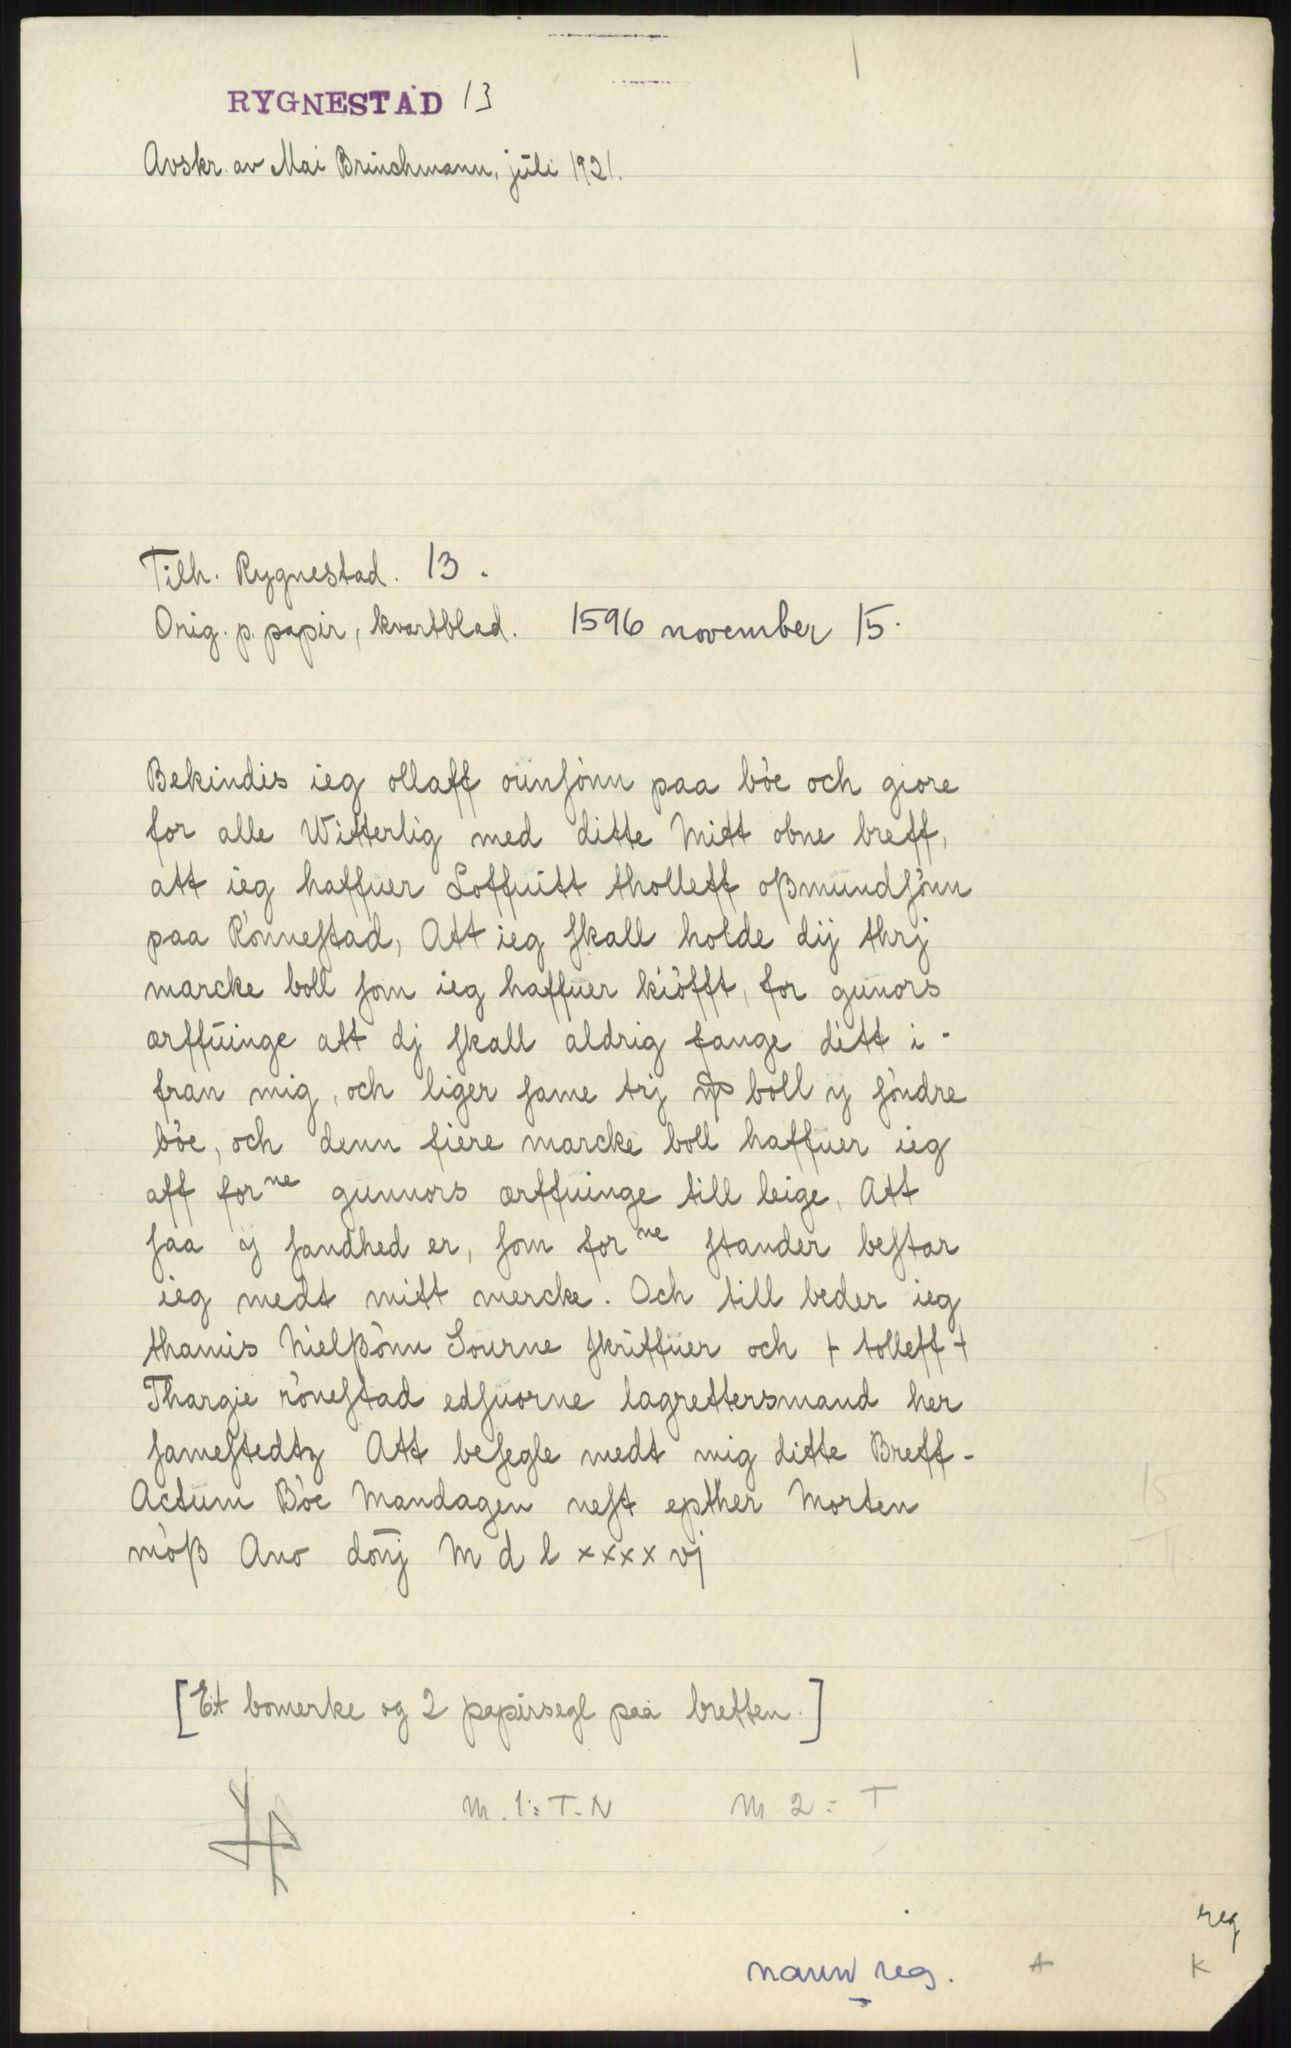 RYGNESTAD 13
Avskr. av Mai Brinchmann, júli 1921.
Tilh. Rygnestad. 13.
Orig. p. papir, kvartblad. 1596 november 15.
Bekindis ieg ollaff oúnſønn paa bøe och giore
for alle Witterlig med ditte Mitt obne breff,
att ieg haffuer Loffuitt tholleff oßmúndſønn
paa Rønneſtad, Att ieg ſkall holde dij thrj
marcke boll ſom ieg haffuer kiøfft, for gunors
ærffúinge att dj ſkall aldrig fange ditt i-
fran mig, och liger ſame trj boll y ſøndre
bøe, och denn fiere marcke boll haffuer ieg
aff forne gunnors ærffuinge till leige, Att
ſaa ij ſandhed er, ſom forne ſtander beſtar
ieg medt mitt mercke. Och till beder ieg
thamis Nielßønn Sourne ſkriffúer och + tolleff +
Thargie røneſtad edſuorne lagrettersmand her
ſameſtedtz Att beſegle medt mig ditte Breff-
Actum Bøe Mandagen neſt epther Morten
møß Ano donj M d l xxxx vj
[Et bomerke og 2 papirsegl paa bretten.]
M. 1: T-N M 2: T
reg
navn reg. A K
15